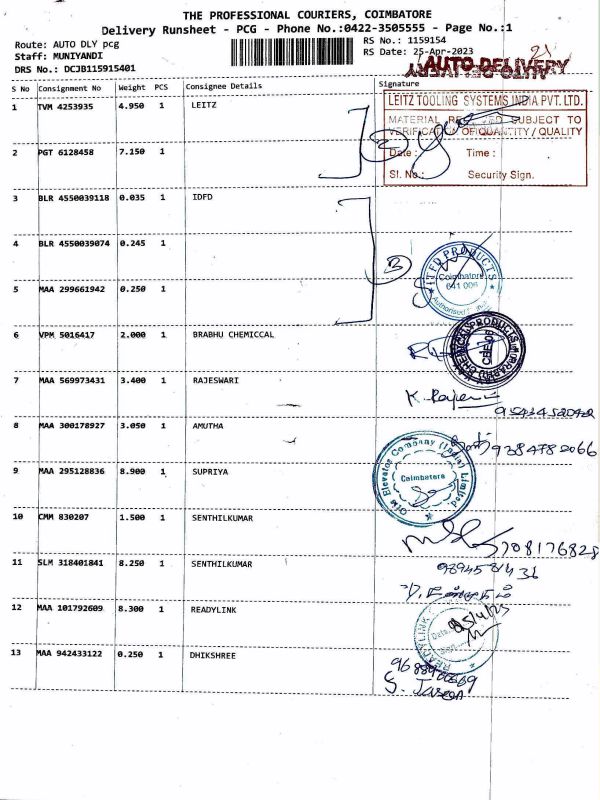 THE PROFESSIONAL COURIERS, COIMBATORE
Delivery Runsheet - PCG - Phone No.:0422-3505555 - Page No.:1
Route: AUTO DLY pcg
RS No.: 1159154
Staff: MUNIYANDI
RS Date: 25-Apr-2023
DRS No.: DCJB115915401
AUTO DELIVERY
S No Consignment No Weight PCS Consignee Details Signature
1 TVM 4253935 4.950 1 LEITZ
LEITZ TOOLING SYSTEMS INDIA PVT. LTD.
MATERIAL RECEIVED SUBJECT TO
VERIFICATION OF QUANTITY / QUALITY
Date : Time :
Sl. No.: Security Sign.
2 PGT 6128458 7.150 1
3 BLR 4550039118 0.035 1 IDFD
4 BLR 4550039074 0.245 1
ITFD PRODUCTS
Coimbatore
641 006
5 MAA 299661942 0.250 1
6 VPM 5016417 2.000 1 BRABHU CHEMICCAL
7 MAA 569973431 3.400 1 RAJESWARI
8 MAA 300178927 3.050 1 AMUTHA
9384782066
9 MAA 295128836 8.900 1 SUPRIYA
Elevator Company (India) Limited
Coimbatore
10 CMM 830207 1.500 1 SENTHILKUMAR
11 SLM 318401841 8.250 1 SENTHILKUMAR
12 MAA 101792609 8.300 1 READYLINK
READYLINK
13 MAA 942433122 0.250 1 DHIKSHREE